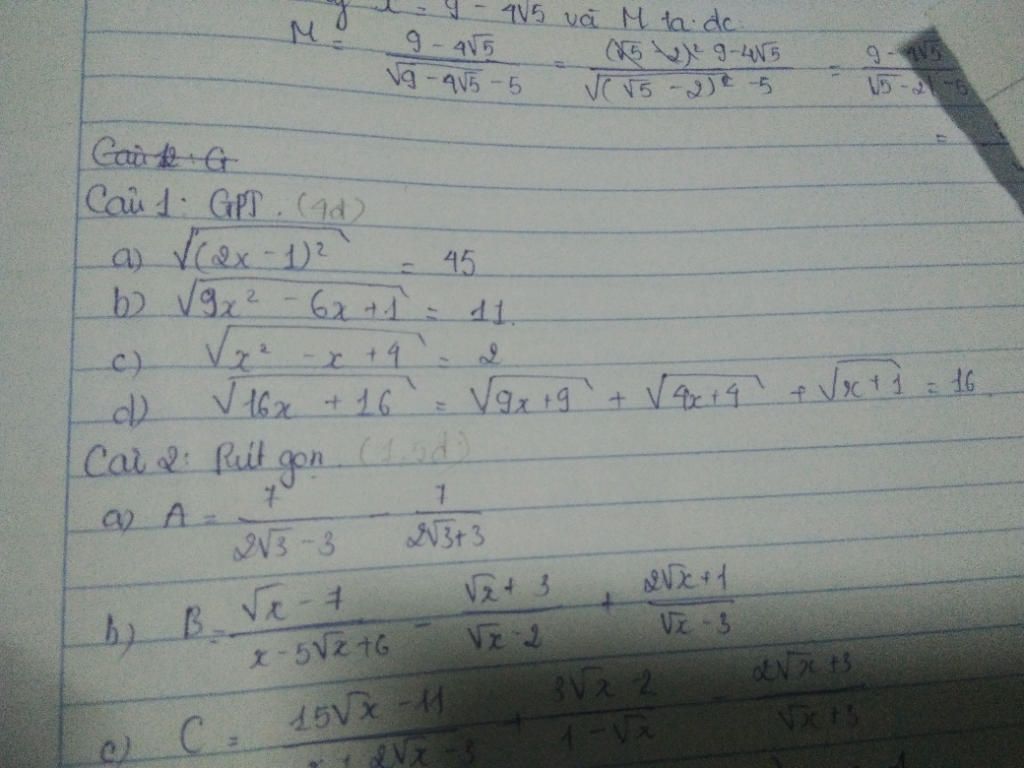 x = 9 - 4√5 và M ta đc
M = (9 - 4√5)/(√(9 - 4√5) - 5) = ((√5 - 2)² 9 - 4√5)/(√((√5 - 2)²) - 5) = (9 - 4√5)/(|√5 - 2| - 5)
=
Câu 2: G
Câu 1: GPT. (4đ)
a) √((2x - 1)²) = 45
b) √(9x² - 6x + 1) = 11.
c) √(x² - x + 4) = 2
d) √(16x + 16) = √(9x + 9) + √(4x + 4) + √(x + 1) = 16.
Câu 2: Rút gọn (1,5đ)
a) A = 7/(2√3 - 3) - 7/(2√3 + 3)
b) B = (√x - 7)/(x - 5√x + 6) - (√x + 3)/(√x - 2) + (2√x + 1)/(√x - 3)
c) C = (15√x - 11)/(x + 2√x - 3) + (3√x - 2)/(1 - √x) - (2√x + 3)/(√x + 3)